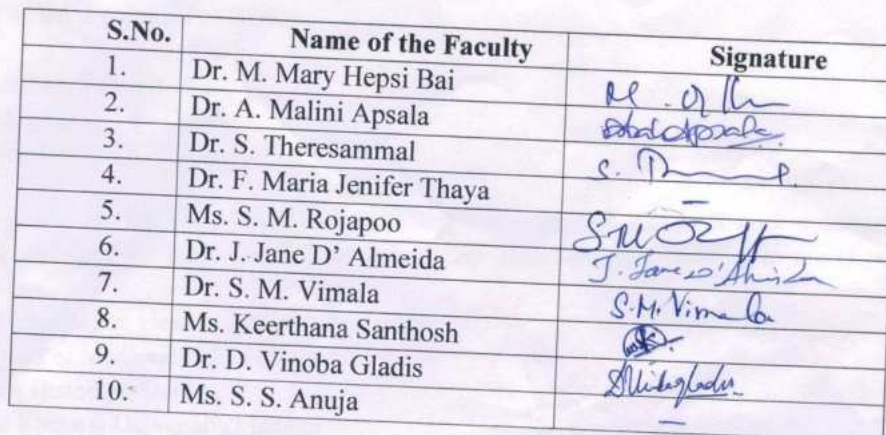 S.No. Name of the Faculty Signature
1. Dr. M. Mary Hepsi Bai
2. Dr. A. Malini Apsala
3. Dr. S. Theresammal S.
4. Dr. F. Maria Jenifer Thaya –
5. Ms. S. M. Rojapoo
6. Dr. J. Jane D’ Almeida J. Jane D' Almeida
7. Dr. S. M. Vimala S.M. Vimala
8. Ms. Keerthana Santhosh
9. Dr. D. Vinoba Gladis
10. Ms. S. S. Anuja –